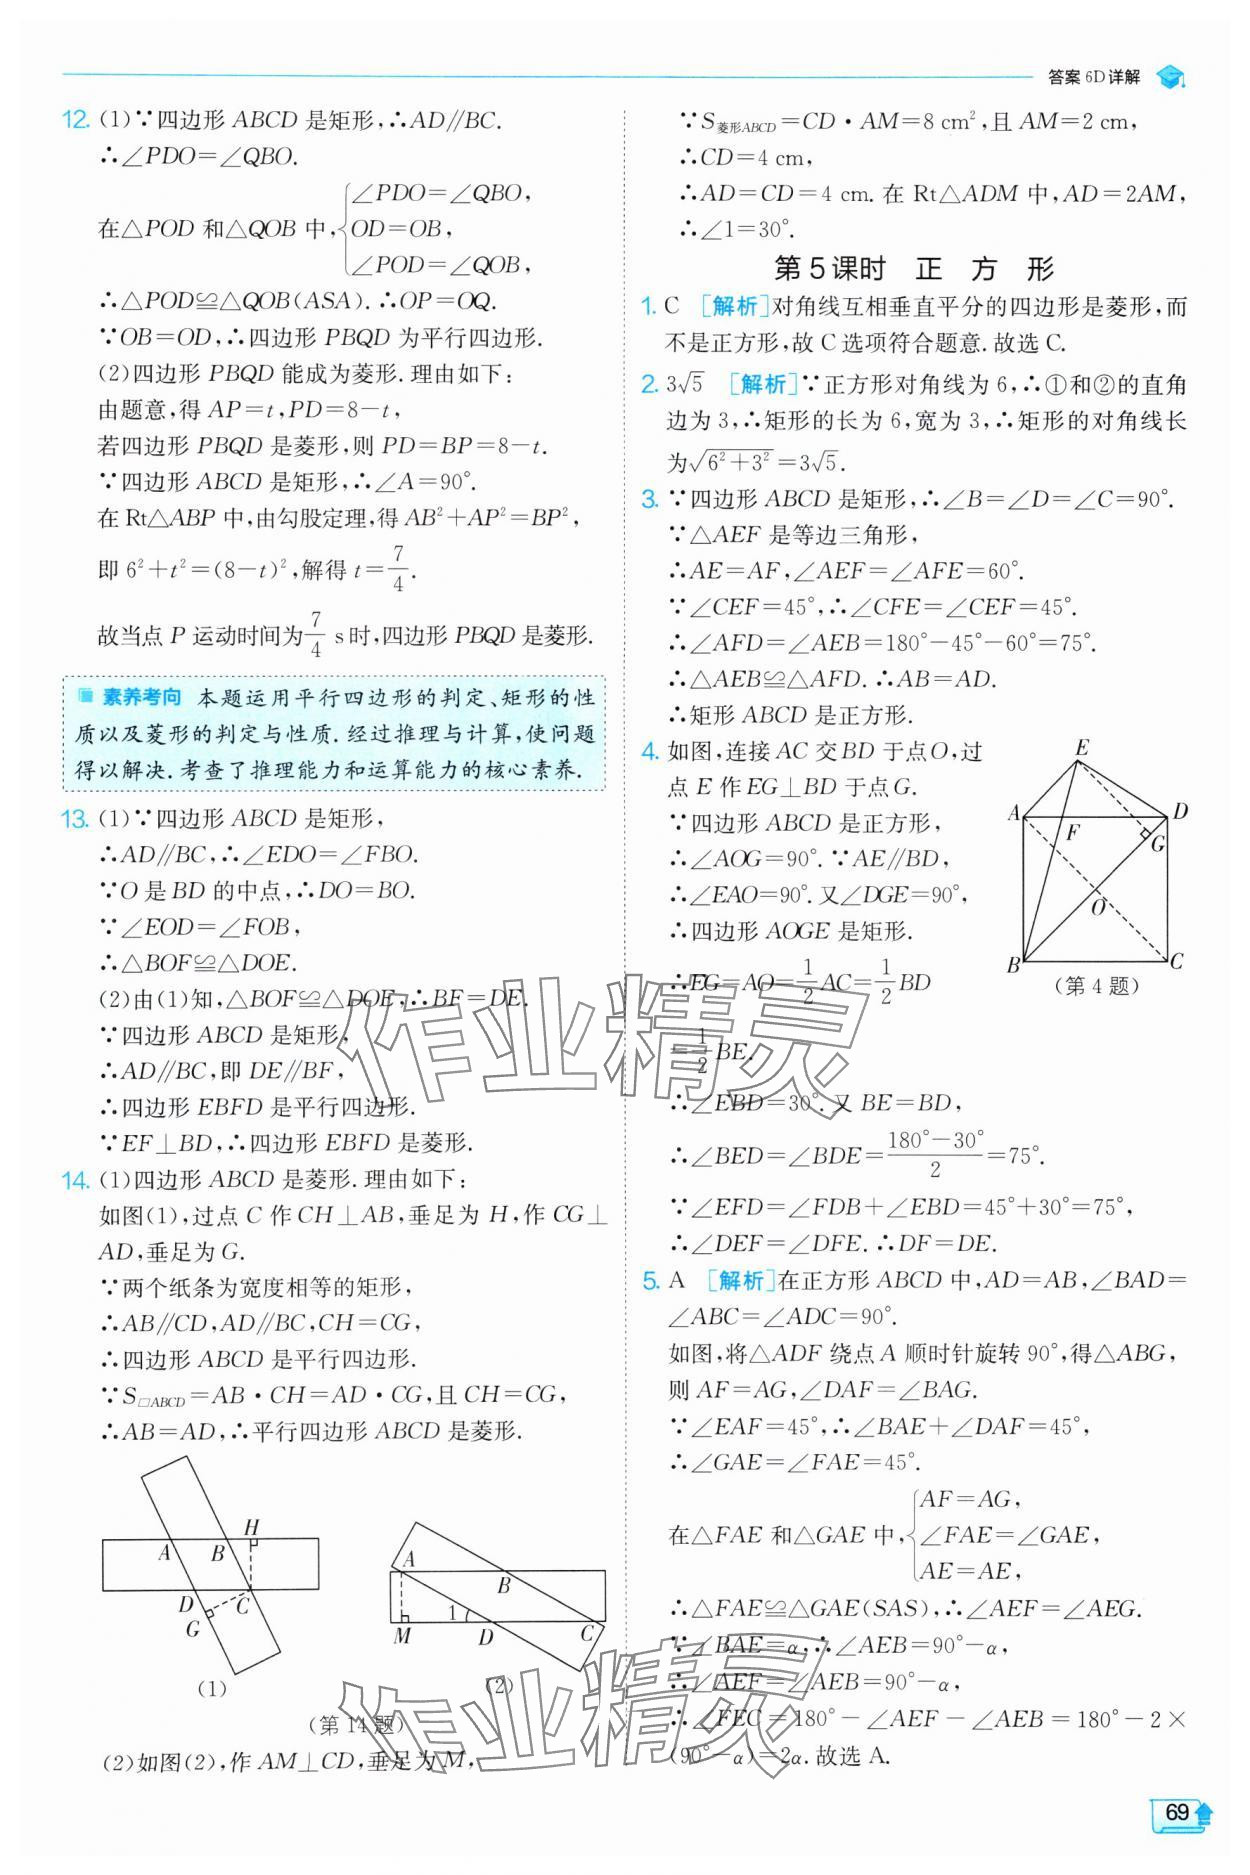 答案 6D详解
12. (1)∵四边形 ABCD 是矩形,∴AD∥BC.
∴∠PDO=∠QBO.
在△POD 和△QOB 中,{∠PDO=∠QBO,
OD=OB,
∠POD=∠QOB,
∴△POD≌△QOB(ASA). ∴OP=OQ.
∵OB=OD,∴四边形 PBQD 为平行四边形.
(2)四边形 PBQD 能成为菱形.理由如下:
由题意,得 AP=t,PD=8-t,
若四边形 PBQD 是菱形,则 PD=BP=8-t.
∵四边形 ABCD 是矩形,∴∠A=90°.
在 Rt△ABP 中,由勾股定理,得 AB²+AP²=BP²,
即 6²+t²=(8-t)²,解得 t=7/4.
故当点 P 运动时间为7/4 s时,四边形 PBQD 是菱形.
素养考向 本题运用平行四边形的判定、矩形的性
质以及菱形的判定与性质.经过推理与计算,使问题
得以解决.考查了推理能力和运算能力的核心素养.
13. (1)∵四边形 ABCD 是矩形,
∴AD∥BC,∴∠EDO=∠FBO.
∵O 是 BD 的中点,∴DO=BO.
∵∠EOD=∠FOB,
∴△BOF≌△DOE.
(2)由(1)知,△BOF≌△DOE,∴BF=DE.
∵四边形 ABCD 是矩形,
∴AD∥BC,即 DE∥BF,
∴四边形 EBFD 是平行四边形.
∵EF⊥BD,∴四边形 EBFD 是菱形.
14. (1)四边形 ABCD 是菱形.理由如下:
如图(1),过点 C 作 CH⊥AB,垂足为 H,作 CG⊥
AD,垂足为 G.
∵两个纸条为宽度相等的矩形,
∴AB∥CD,AD∥BC,CH=CG,
∴四边形 ABCD 是平行四边形.
∵S□ABCD=AB·CH=AD·CG,且 CH=CG,
∴AB=AD,∴平行四边形 ABCD 是菱形.
A B H D C G
(1)
A B 1 M D C
(2)
(第 14 题)
(2)如图(2),作 AM⊥CD,垂足为 M,
∵S菱形ABCD=CD·AM=8 cm²,且 AM=2 cm,
∴CD=4 cm,
∴AD=CD=4 cm.在 Rt△ADM 中,AD=2AM,
∴∠1=30°.
第 5 课时 正 方 形
1. C [解析]对角线互相垂直平分的四边形是菱形,而
不是正方形,故 C 选项符合题意.故选 C.
2. 3√5 [解析]∵正方形对角线为 6,∴①和②的直角
边为 3,∴矩形的长为 6,宽为 3,∴矩形的对角线长
为√(6²+3²)=3√5.
3. ∵四边形 ABCD 是矩形,∴∠B=∠D=∠C=90°.
∵△AEF 是等边三角形,
∴AE=AF,∠AEF=∠AFE=60°.
∵∠CEF=45°,∴∠CFE=∠CEF=45°.
∴∠AFD=∠AEB=180°-45°-60°=75°.
∴△AEB≌△AFD. ∴AB=AD.
∴矩形 ABCD 是正方形.
4. 如图,连接 AC 交 BD 于点 O,过
点 E 作 EG⊥BD 于点 G.
∵四边形 ABCD 是正方形,
∴∠AOG=90°.∵AE∥BD,
∴∠EAO=90°.又∠DGE=90°,
∴四边形 AOGE 是矩形.
∴EG=AO=1/2 AC=1/2 BD
=1/2 BE.
E A D F G O B C
(第 4 题)
∴∠EBD=30°.又 BE=BD,
∴∠BED=∠BDE=(180°-30°)/2=75°.
∵∠EFD=∠FDB+∠EBD=45°+30°=75°,
∴∠DEF=∠DFE. ∴DF=DE.
5. A [解析]在正方形 ABCD 中,AD=AB,∠BAD=
∠ABC=∠ADC=90°.
如图,将△ADF 绕点 A 顺时针旋转 90°,得△ABG,
则 AF=AG,∠DAF=∠BAG.
∵∠EAF=45°,∴∠BAE+∠DAF=45°,
∴∠GAE=∠FAE=45°.
在△FAE 和△GAE 中,{AF=AG,
∠FAE=∠GAE,
AE=AE,
∴△FAE≌△GAE(SAS),∴∠AEF=∠AEG.
∵∠BAE=α,∴∠AEB=90°-α,
∴∠AEF=∠AEB=90°-α,
∴∠FEC=180°-∠AEF-∠AEB=180°-2×
(90°-α)=2α.故选 A.
作业精灵
作业精灵
69